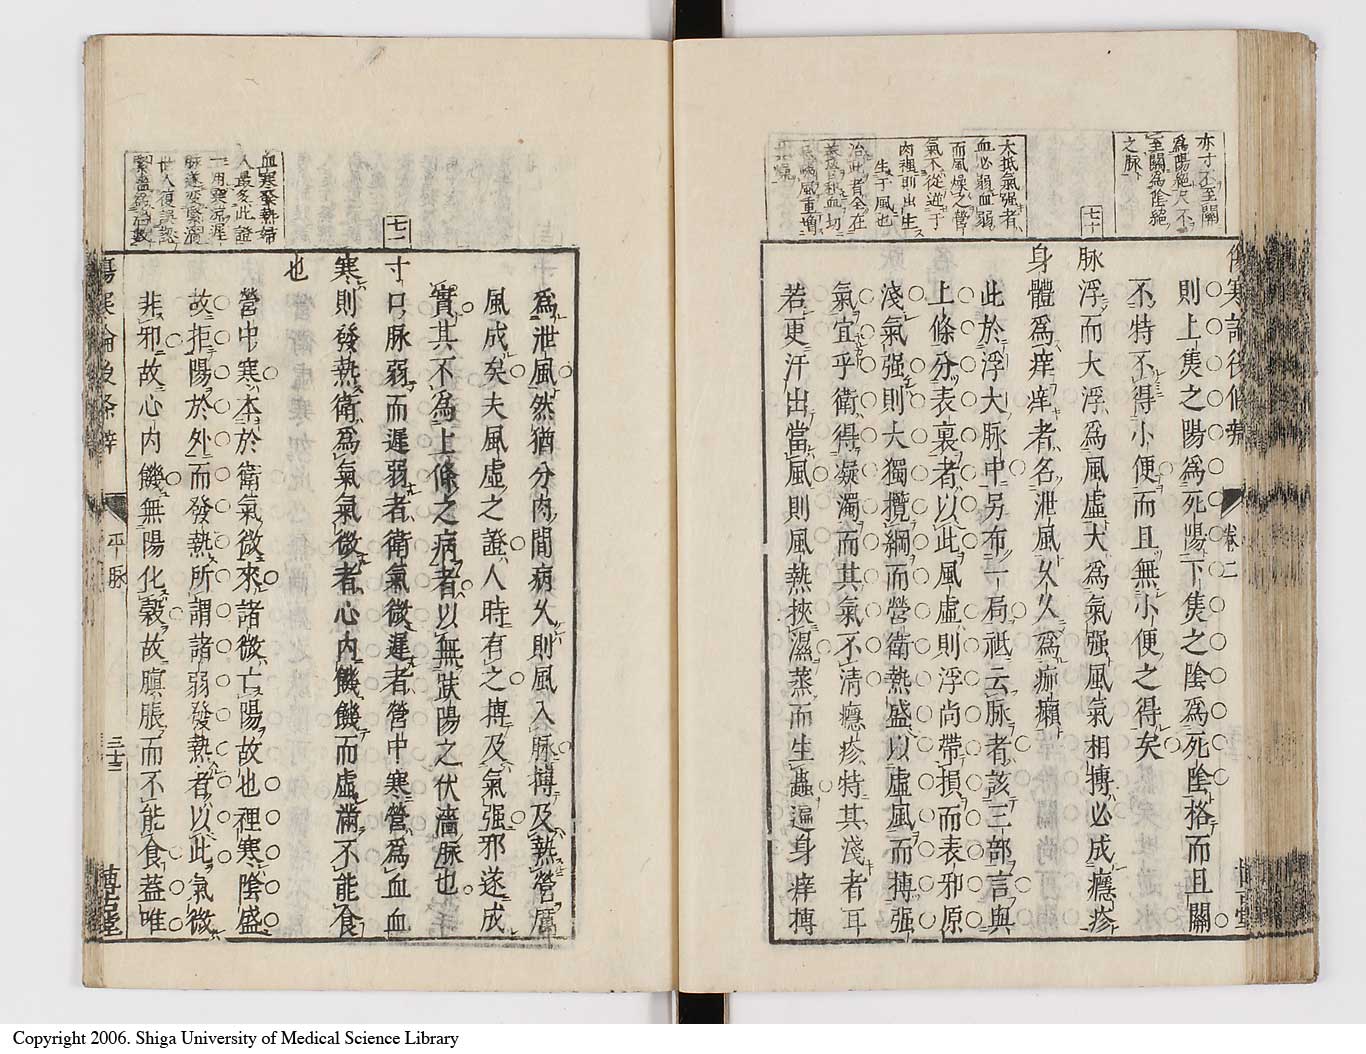 傷寒論後條辨
卷二
亦寸不至關
爲陽絕尺不
至關爲陰絕
之脉
則上焦之陽爲死陽下焦之陰爲死陰格而且關
不特不得小便而且無小便之得矣
七十
脉浮而大浮爲風虛大爲氣强風氣相搏必成癮疹
身體爲痒痒者名泄風久久爲痂癩
大抵氣强者
血必弱血弱
而風燥之營
氣不從逆于
肉裡則出生
生于風也
治此者全在
此於浮大脉中另布一局祗云脉者該三部言與
上條分表裏者以此風虛則浮尚帶損而表邪原
淺氣强則大獨攬綱而營衛熱盛以虛風而搏强
氣宜乎衛得凝濁而其氣不清癮疹特其淺者耳
若更汗出當風則風熱挾濕蒸而生蟲遍身痒搏
爲泄風然猶分肉間病久則風入脉搏及熱營厲
風成矣夫風虛之證人時有之搏及氣强邪遂成
實其不爲上條之病者以無趺陽之伏濇脉也
七一
寸口脉弱而遲弱者衛氣微遲者營中寒營爲血血
寒則發熱衛爲氣氣微者心內饑饑而虛滿不能食
也
血寒發熱婦
人最多此證
一用寒凉遲
脉遂變緊濇
世人復誤認
營中寒本於衛氣微來諸微亡陽故也裡寒陰盛
故拒陽於外而發熱所謂諸弱發熱者以此氣微
非邪故心內饑無陽化穀故䐜脹而不能食蓋唯
傷寒論後條辨
平脉
三十二
博古堂
Copyright 2006. Shiga University of Medical Science Library